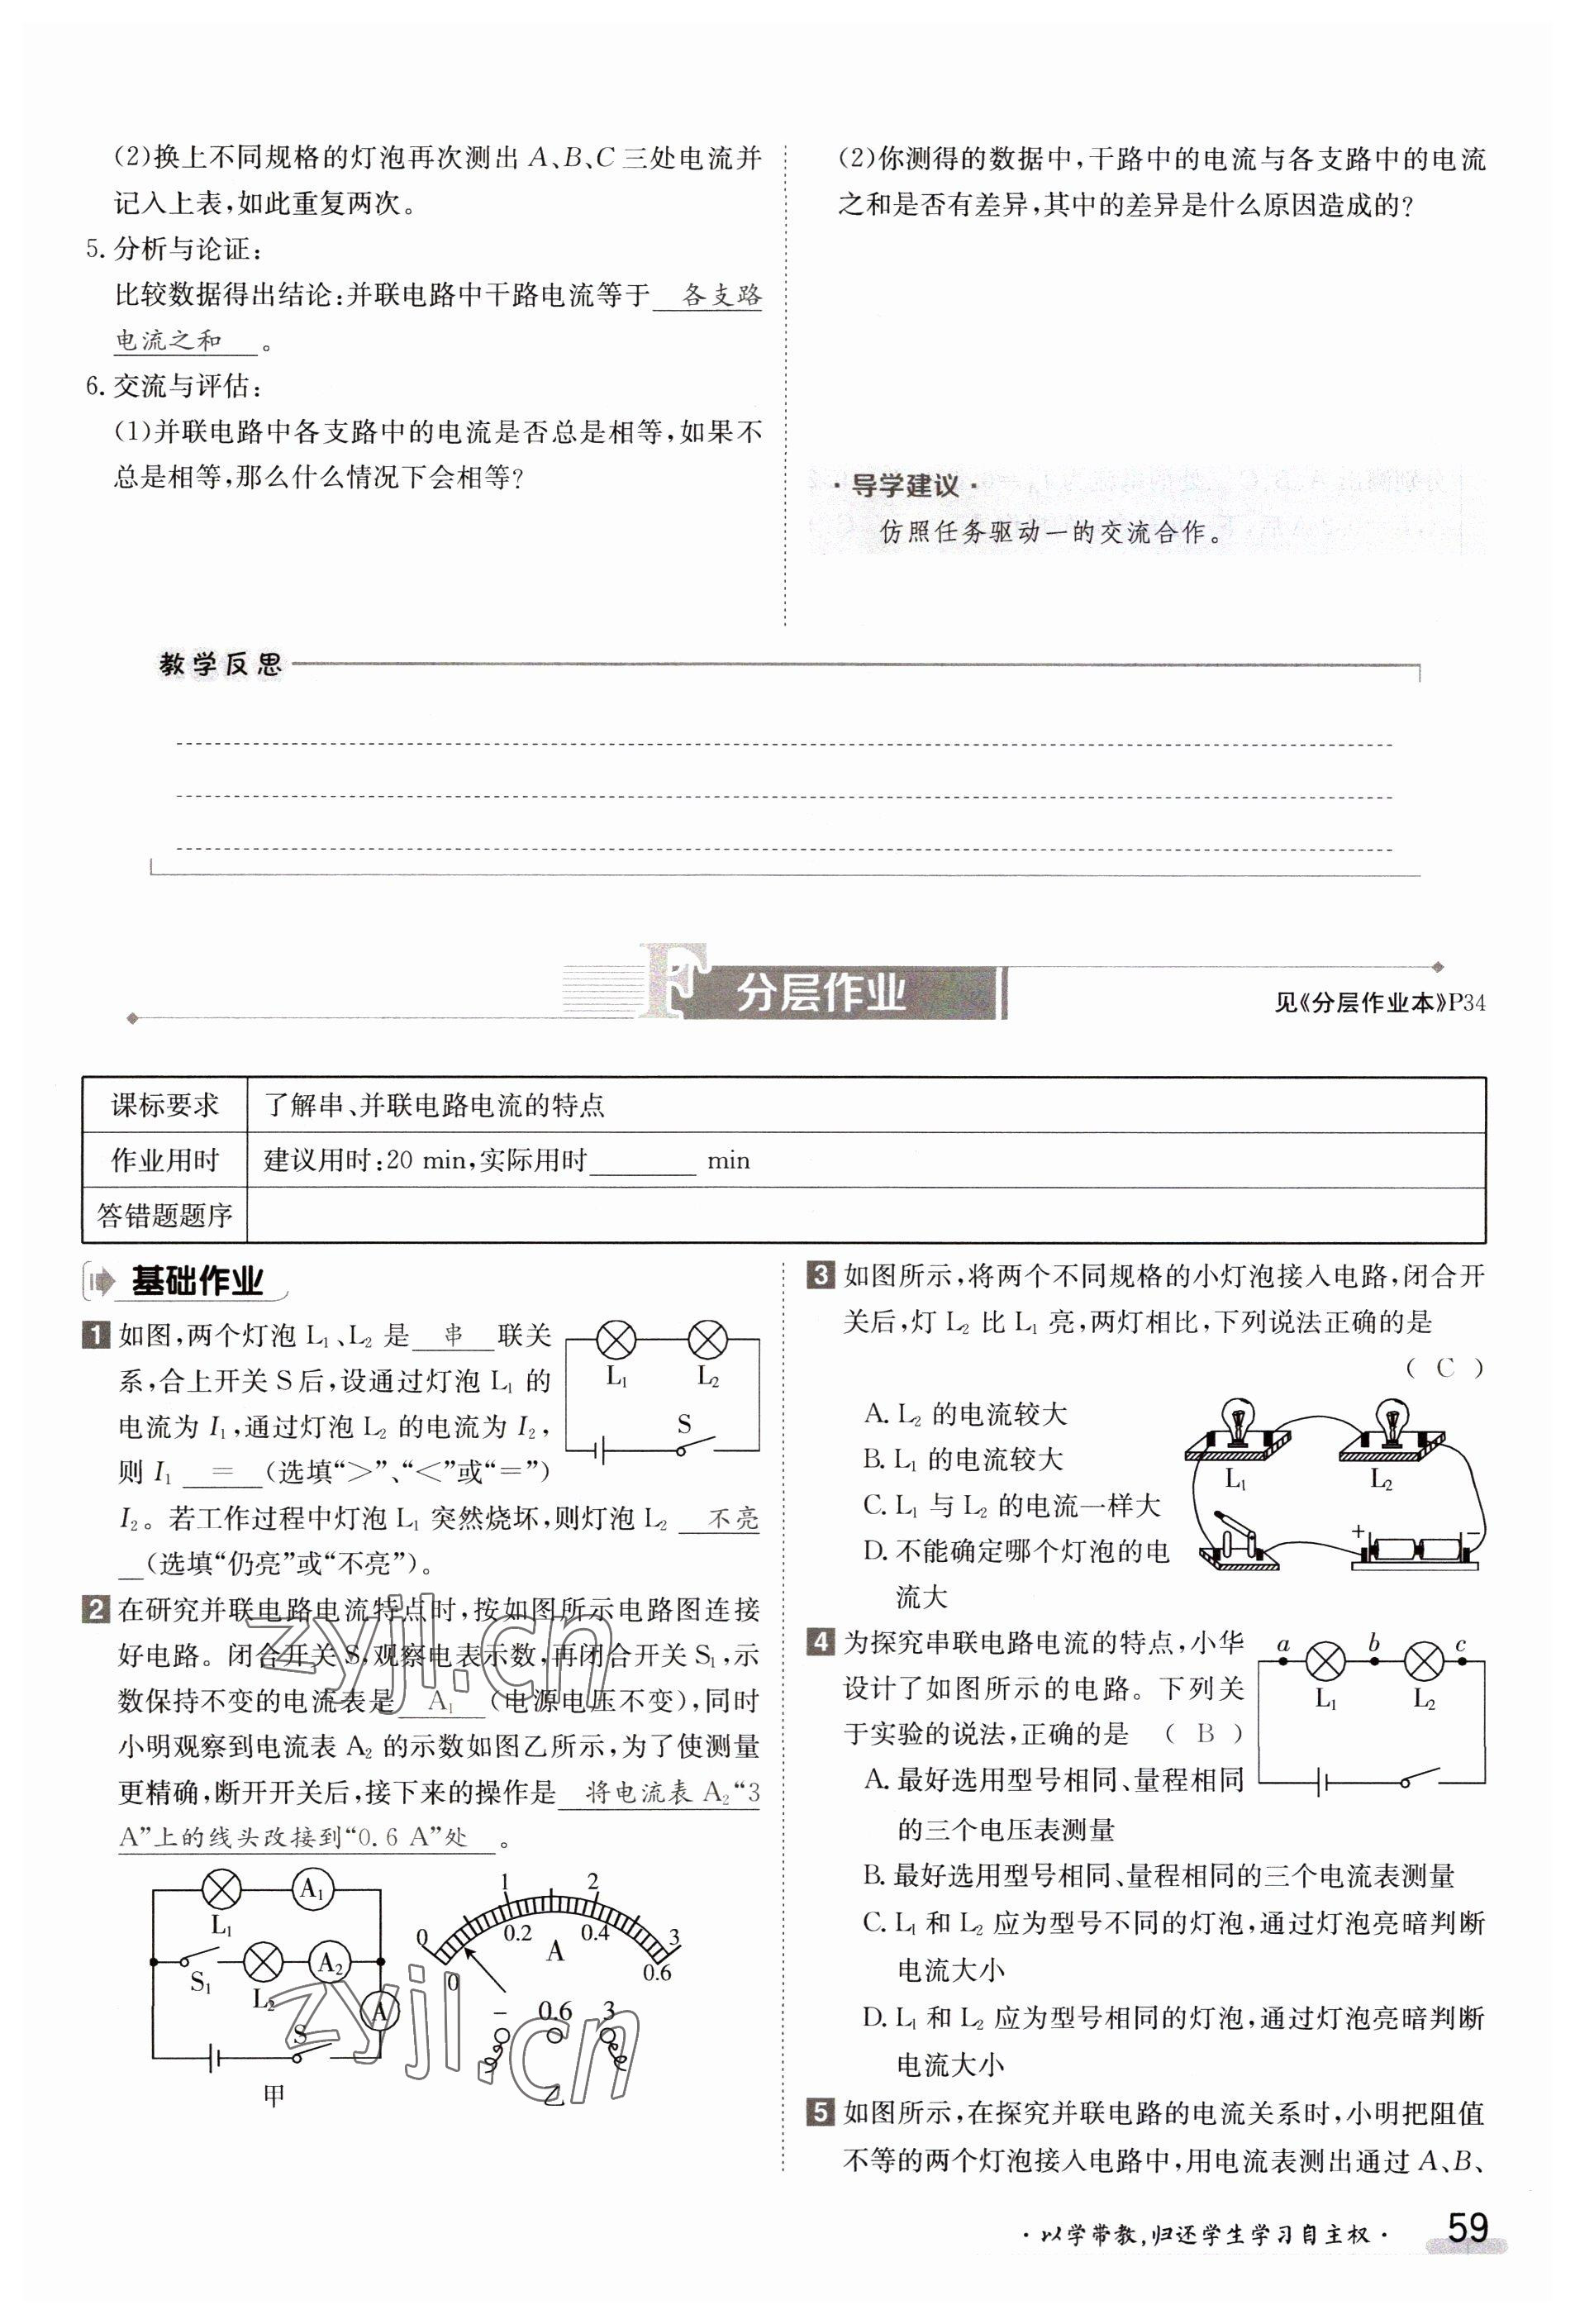 (2)换上不同规格的灯泡再次测出 A、B、C 三处电流并
记入上表,如此重复两次。
5. 分析与论证:
比较数据得出结论:并联电路中干路电流等于 各支路
电流之和 。
6. 交流与评估:
(1)并联电路中各支路中的电流是否总是相等,如果不
总是相等,那么什么情况下会相等?
(2)你测得的数据中,干路中的电流与各支路中的电流
之和是否有差异,其中的差异是什么原因造成的?
·导学建议·
仿照任务驱动一的交流合作。
教学反思
F 分层作业
见《分层作业本》P34
课标要求 了解串、并联电路电流的特点
作业用时 建议用时:20 min,实际用时________ min
答错题题序
基础作业
1 如图,两个灯泡 L₁、L₂ 是 串 联关
系,合上开关 S 后,设通过灯泡 L₁ 的
电流为 I₁,通过灯泡 L₂ 的电流为 I₂,
则 I₁ = (选填“>”、“<”或“=”)
I₂。若工作过程中灯泡 L₁ 突然烧坏,则灯泡 L₂ 不亮
(选填“仍亮”或“不亮”)。
L₁ L₂
S
2 在研究并联电路电流特点时,按如图所示电路图连接
好电路。闭合开关 S,观察电表示数,再闭合开关 S₁,示
数保持不变的电流表是 A₁ (电源电压不变),同时
小明观察到电流表 A₂ 的示数如图乙所示,为了使测量
更精确,断开开关后,接下来的操作是 将电流表 A₂“3
A”上的线头改接到“0.6 A”处 。
L₁ A₁
S₁ L₂ A₂
A
S
甲
0 1 2 3
0 0.2 0.4 0.6
A
− 0.6 3
乙
3 如图所示,将两个不同规格的小灯泡接入电路,闭合开
关后,灯 L₂ 比 L₁ 亮,两灯相比,下列说法正确的是
( C )
A. L₂ 的电流较大
B. L₁ 的电流较大
C. L₁ 与 L₂ 的电流一样大
D. 不能确定哪个灯泡的电
流大
L₁ L₂
+ −
4 为探究串联电路电流的特点,小华
设计了如图所示的电路。下列关
于实验的说法,正确的是 ( B )
a b c
L₁ L₂
A. 最好选用型号相同、量程相同
的三个电压表测量
B. 最好选用型号相同、量程相同的三个电流表测量
C. L₁ 和 L₂ 应为型号不同的灯泡,通过灯泡亮暗判断
电流大小
D. L₁ 和 L₂ 应为型号相同的灯泡,通过灯泡亮暗判断
电流大小
5 如图所示,在探究并联电路的电流关系时,小明把阻值
不等的两个灯泡接入电路中,用电流表测出通过 A、B、
·以学带教,归还学生学习自主权·
59
zyjl.cn
zyjl.cn